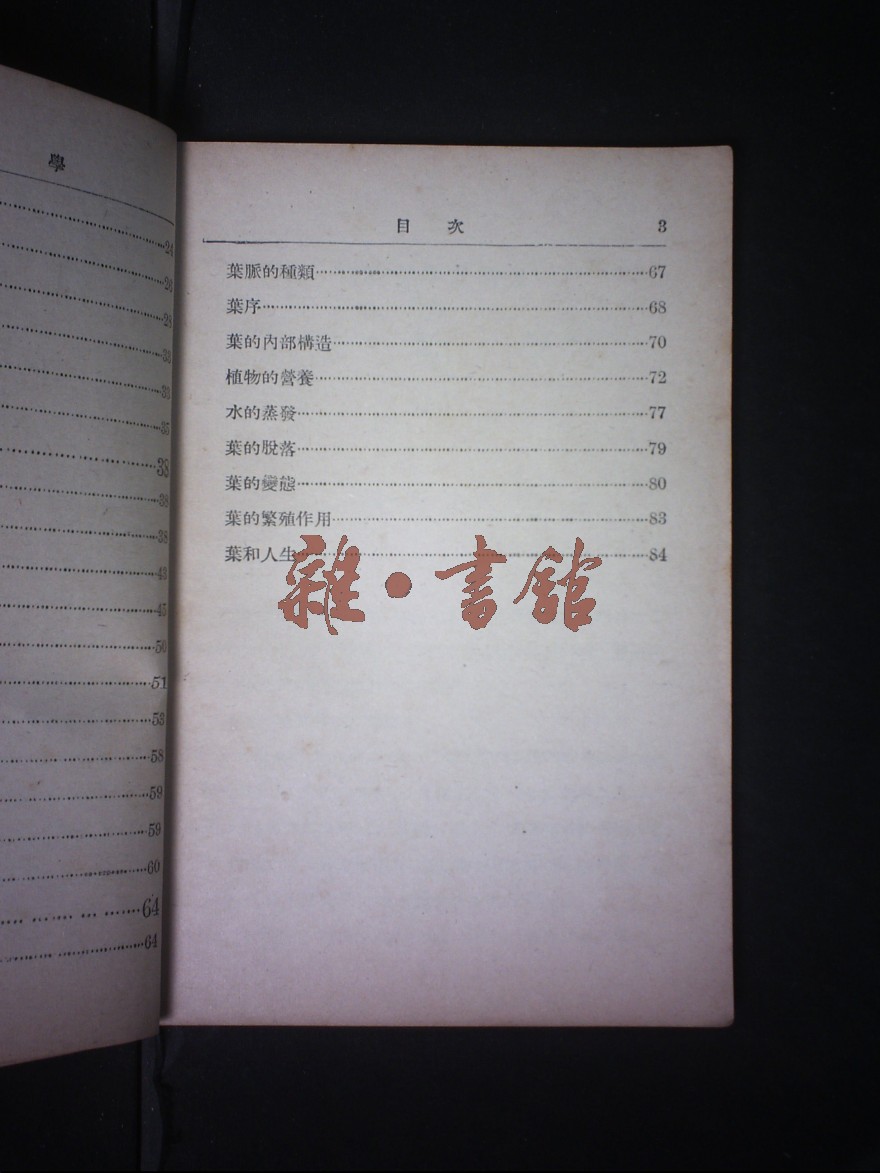 學
24
26
28
33
33
35
38
38
38
43
45
50
51
53
58
59
59
60
64
64
目 次 3
葉脈的種類⋯⋯67
葉序⋯⋯68
葉的內部構造⋯⋯70
植物的營養⋯⋯72
水的蒸發⋯⋯77
葉的脫落⋯⋯79
葉的變態⋯⋯80
葉的繁殖作用⋯⋯83
葉和人生⋯⋯84
雜·書館